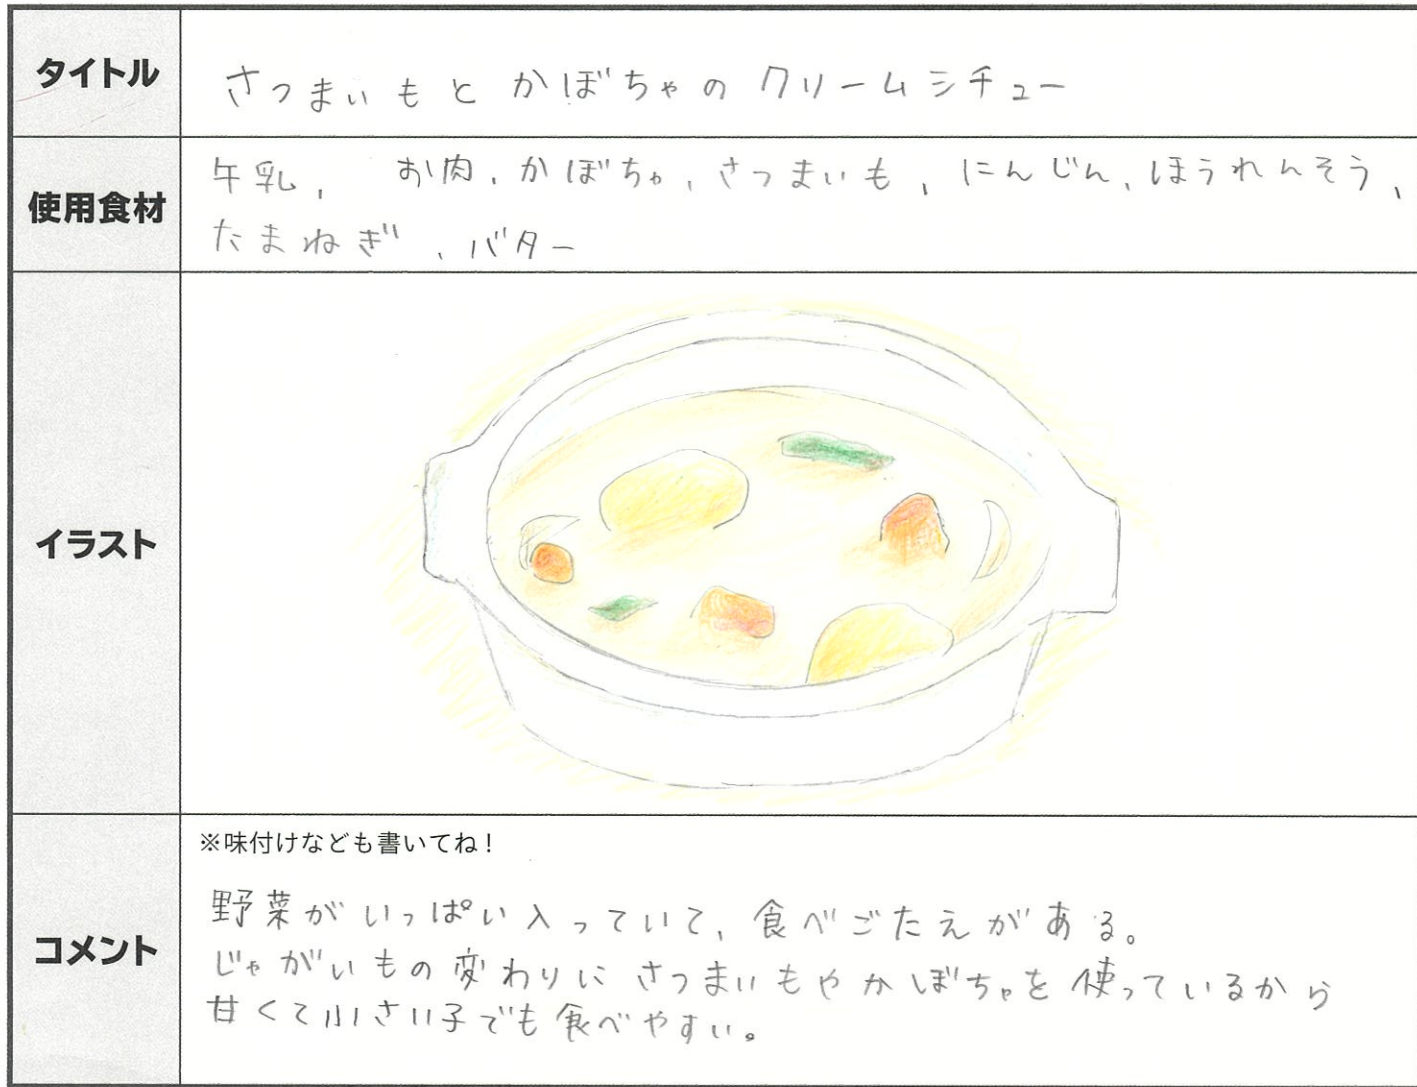 タイトル
さつまいもとかぼちゃのクリームシチュー
使用食材
牛乳, お肉, かぼちゃ, さつまいも, にんじん, ほうれんそう,
たまねぎ, バター
イラスト
コメント
※味付けなども書いてね!
野菜がいっぱい入っていて、食べごたえがある。
じゃがいもの変わりにさつまいもやかぼちゃを使っているから
甘くて小さい子でも食べやすい。